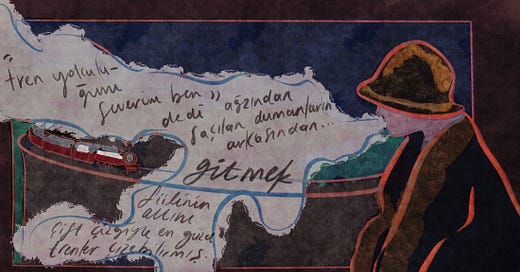 "tren yolculu-
ğunu
severim ben" ağzından
dedi
saçılan dumanların
arkasından...
gitmek
fiilinin
altına
çift çizgiyle en güzel
trenler çizebilirmiş.